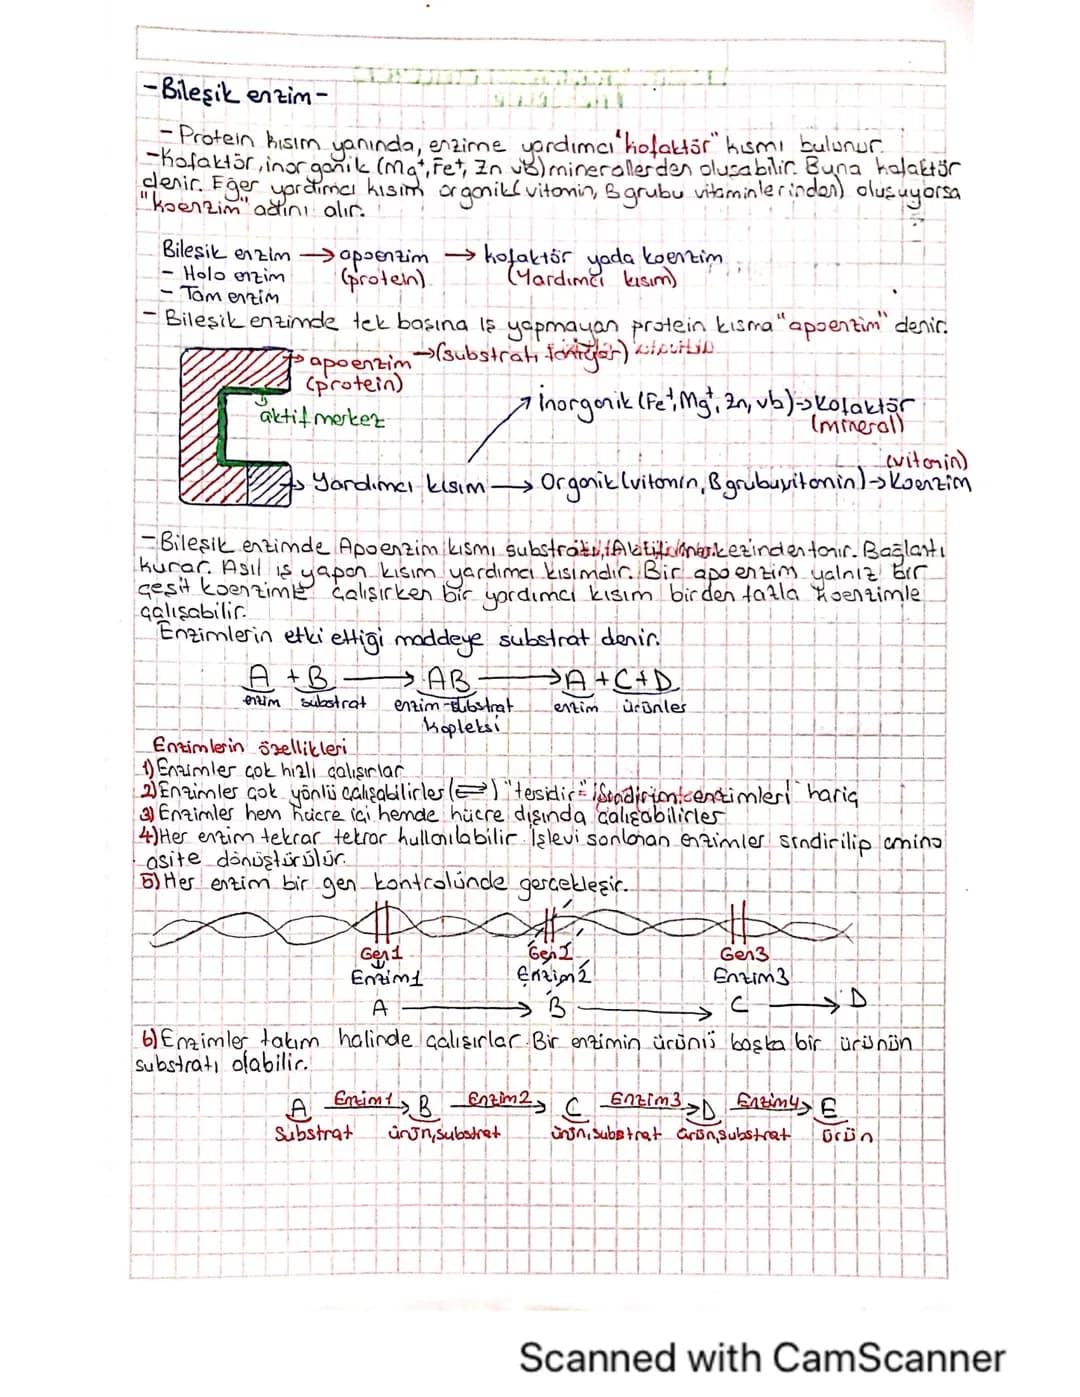 -Bileşik enzim-
- Protein kısım yanında, enzime yardımcı "kofaktör" kısmı bulunur.
-Kofaktör, inorganik (Mg⁺, Fe⁺, Zn vb) minerallerden oluşabilir. Buna kofaktör
denir. Eğer yardımcı kısım organik (vitamin, B grubu vitaminlerinden) oluşuyorsa
"koenzim" adını alır.
Bileşik enzim → apoenzim → kofaktör yada koenzim
- Holo enzim (protein) (Yardımcı kısım)
- Tam enzim
- Bileşik enzimde tek başına iş yapmayan protein kısma "apoenzim" denir.
apoenzim → (substratı tanıyan)
(protein)
aktif merkez
inorganik (Fe⁺, Mg⁺, Zn, vb) → Kofaktör
(mineral)
(vitamin)
Yardımcı kısım → Organik (vitamin, B grubu vitamin) → Koenzim
- Bileşik enzimde Apoenzim kısmı substratı, Aktif merkezinden tanır. Bağlantı
kurar. Asıl iş yapan kısım yardımcı kısımdır. Bir apoenzim yalnız bir
çeşit koenzimle çalışırken bir yardımcı kısım birden fazla koenzimle
çalışabilir.
Enzimlerin etki ettiği maddeye substrat denir.
A + B → AB → A + C + D
enzim substrat enzim-substrat enzim ürünler
kopleksi
Enzimlerin özellikleri
1) Enzimler çok hızlı çalışırlar
2) Enzimler çok yönlü çalışabilirler (⇌) "tersidir" sindirim enzimleri hariç
3) Enzimler hem hücre içi hemde hücre dışında çalışabilirler
4) Her enzim tekrar tekrar kullanılabilir. İşlevi sonlanan enzimler sindirilip amino
asite dönüştürülür.
5) Her enzim bir gen kontrolünde gerçekleşir.
Gen1 Gen2 Gen3
Enzim1 Enzim2 Enzim3
A → B → C → D
6) Enzimler takım halinde çalışırlar. Bir enzimin ürünü başka bir ürünün
substratı olabilir.
A Enzim1→ B Enzim2→ C Enzim3→ D Enzim4→ E
Substrat ürün, substrat ürün, substrat ürün, substrat ürün
Scanned with CamScanner